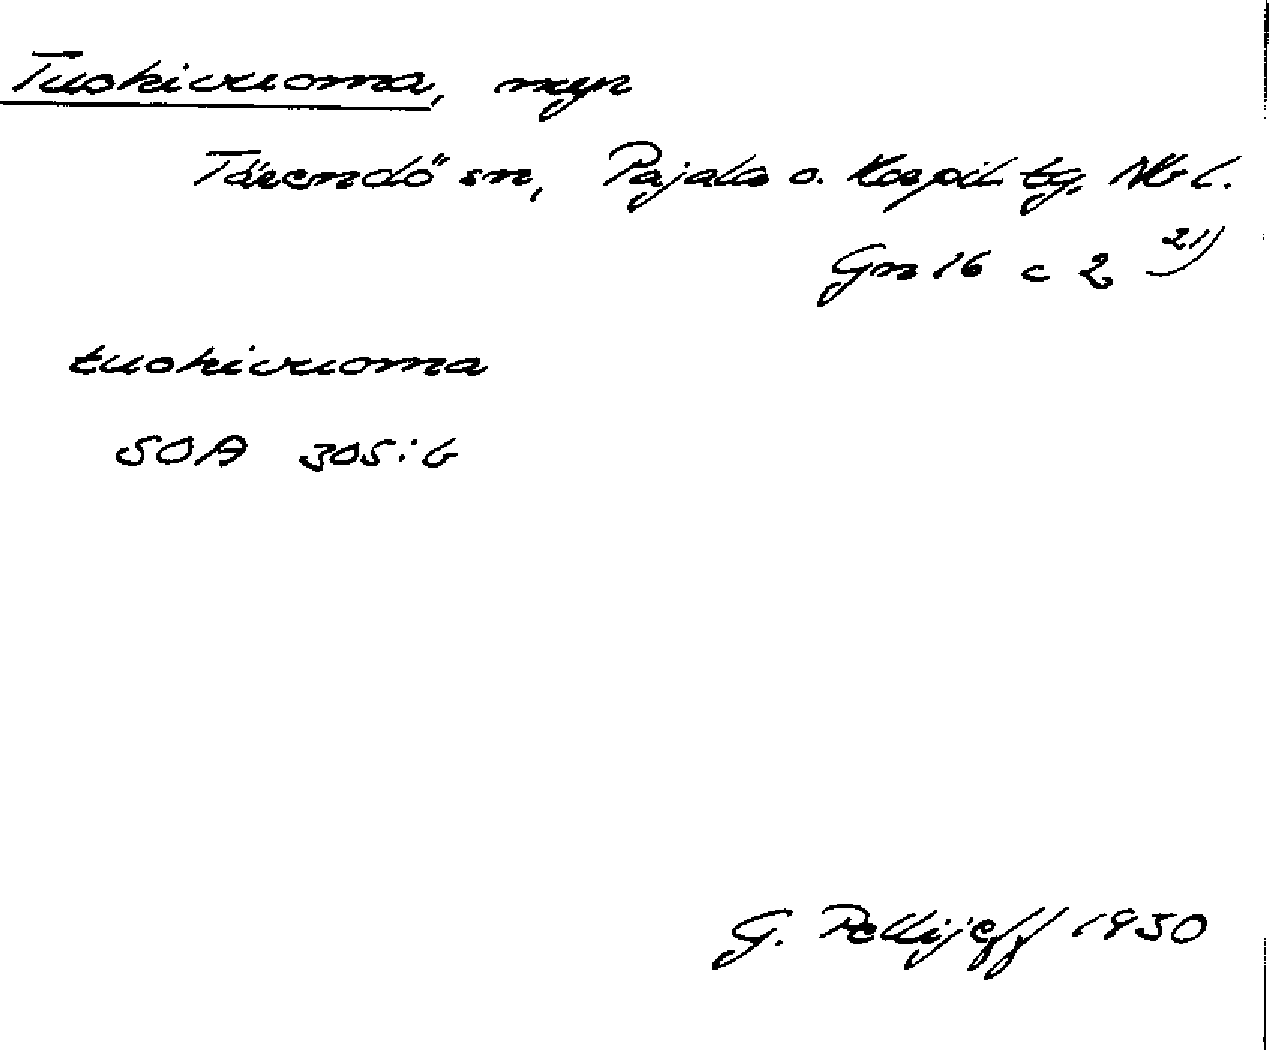 Tuokivuoma, myr
Tärendö sn, Pajala o. Korpil. tg, Nb l.
Gn 16 c 2 21)
tuokivuoma
SOA 305:6
G. Pellijeff 1950